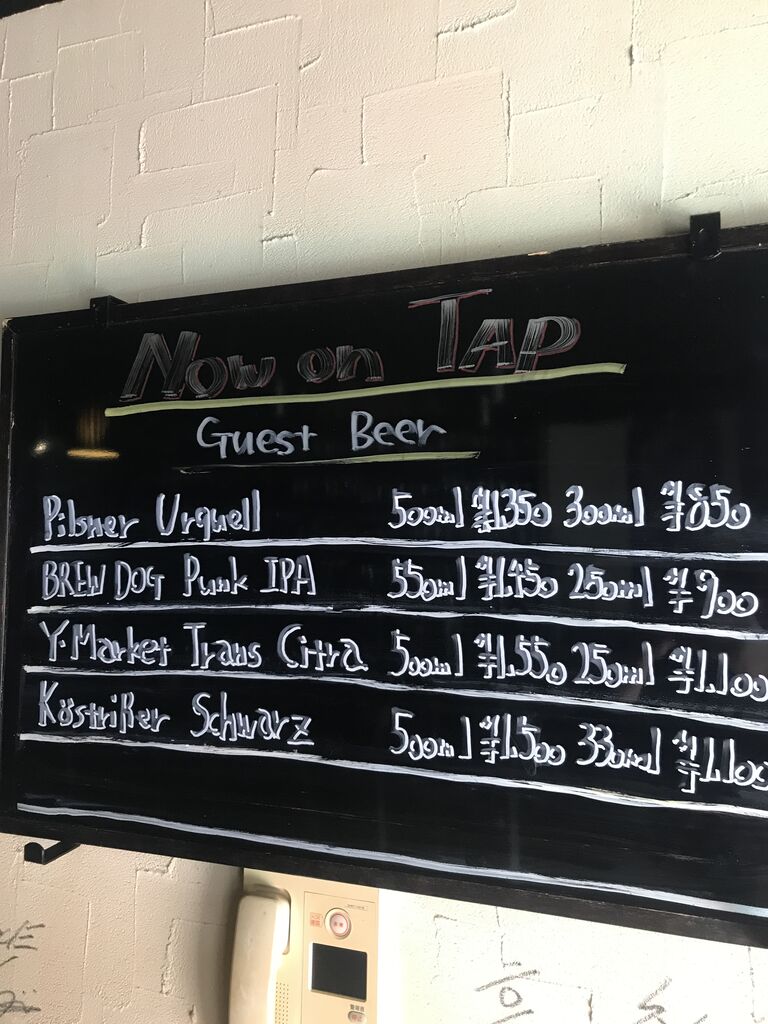 Now on TAP
Guest Beer
Pilsner Urquell 500ml ¥1,350 300ml ¥850
BREW DOG Punk IPA 550ml ¥1,450 250ml ¥900
Y.Market Trans Citra 500ml ¥1,550 250ml ¥1,100
Köstrißer Schwarz 500ml ¥1,500 330ml ¥1,100